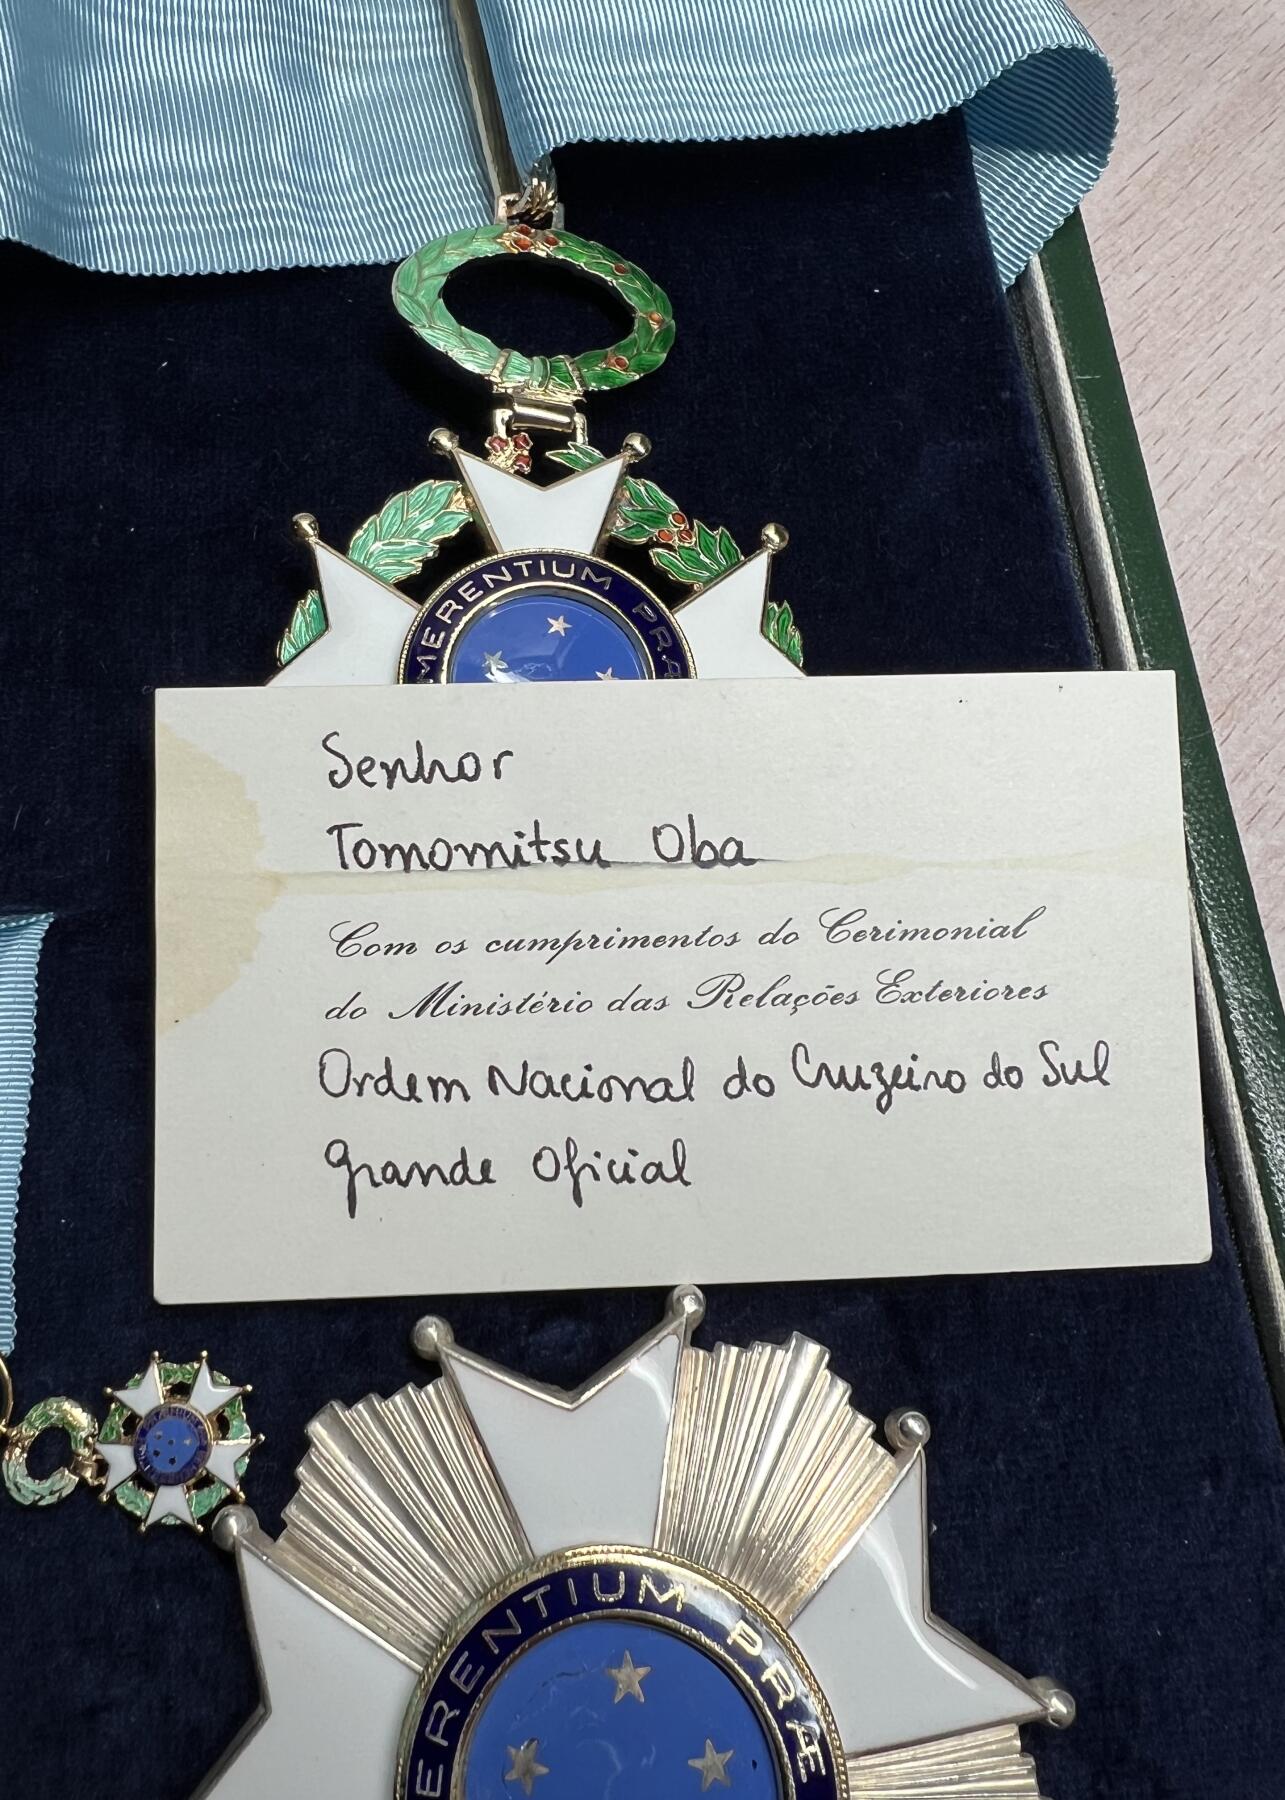 MERENTIUM PRÆ
Senhor
Tomomitsu Oba
Com os cumprimentos do Cerimonial
do Ministério das Relações Exteriores
Ordem Nacional do Cruzeiro do Sul
Grande Oficial
ERENTIUM PRÆ